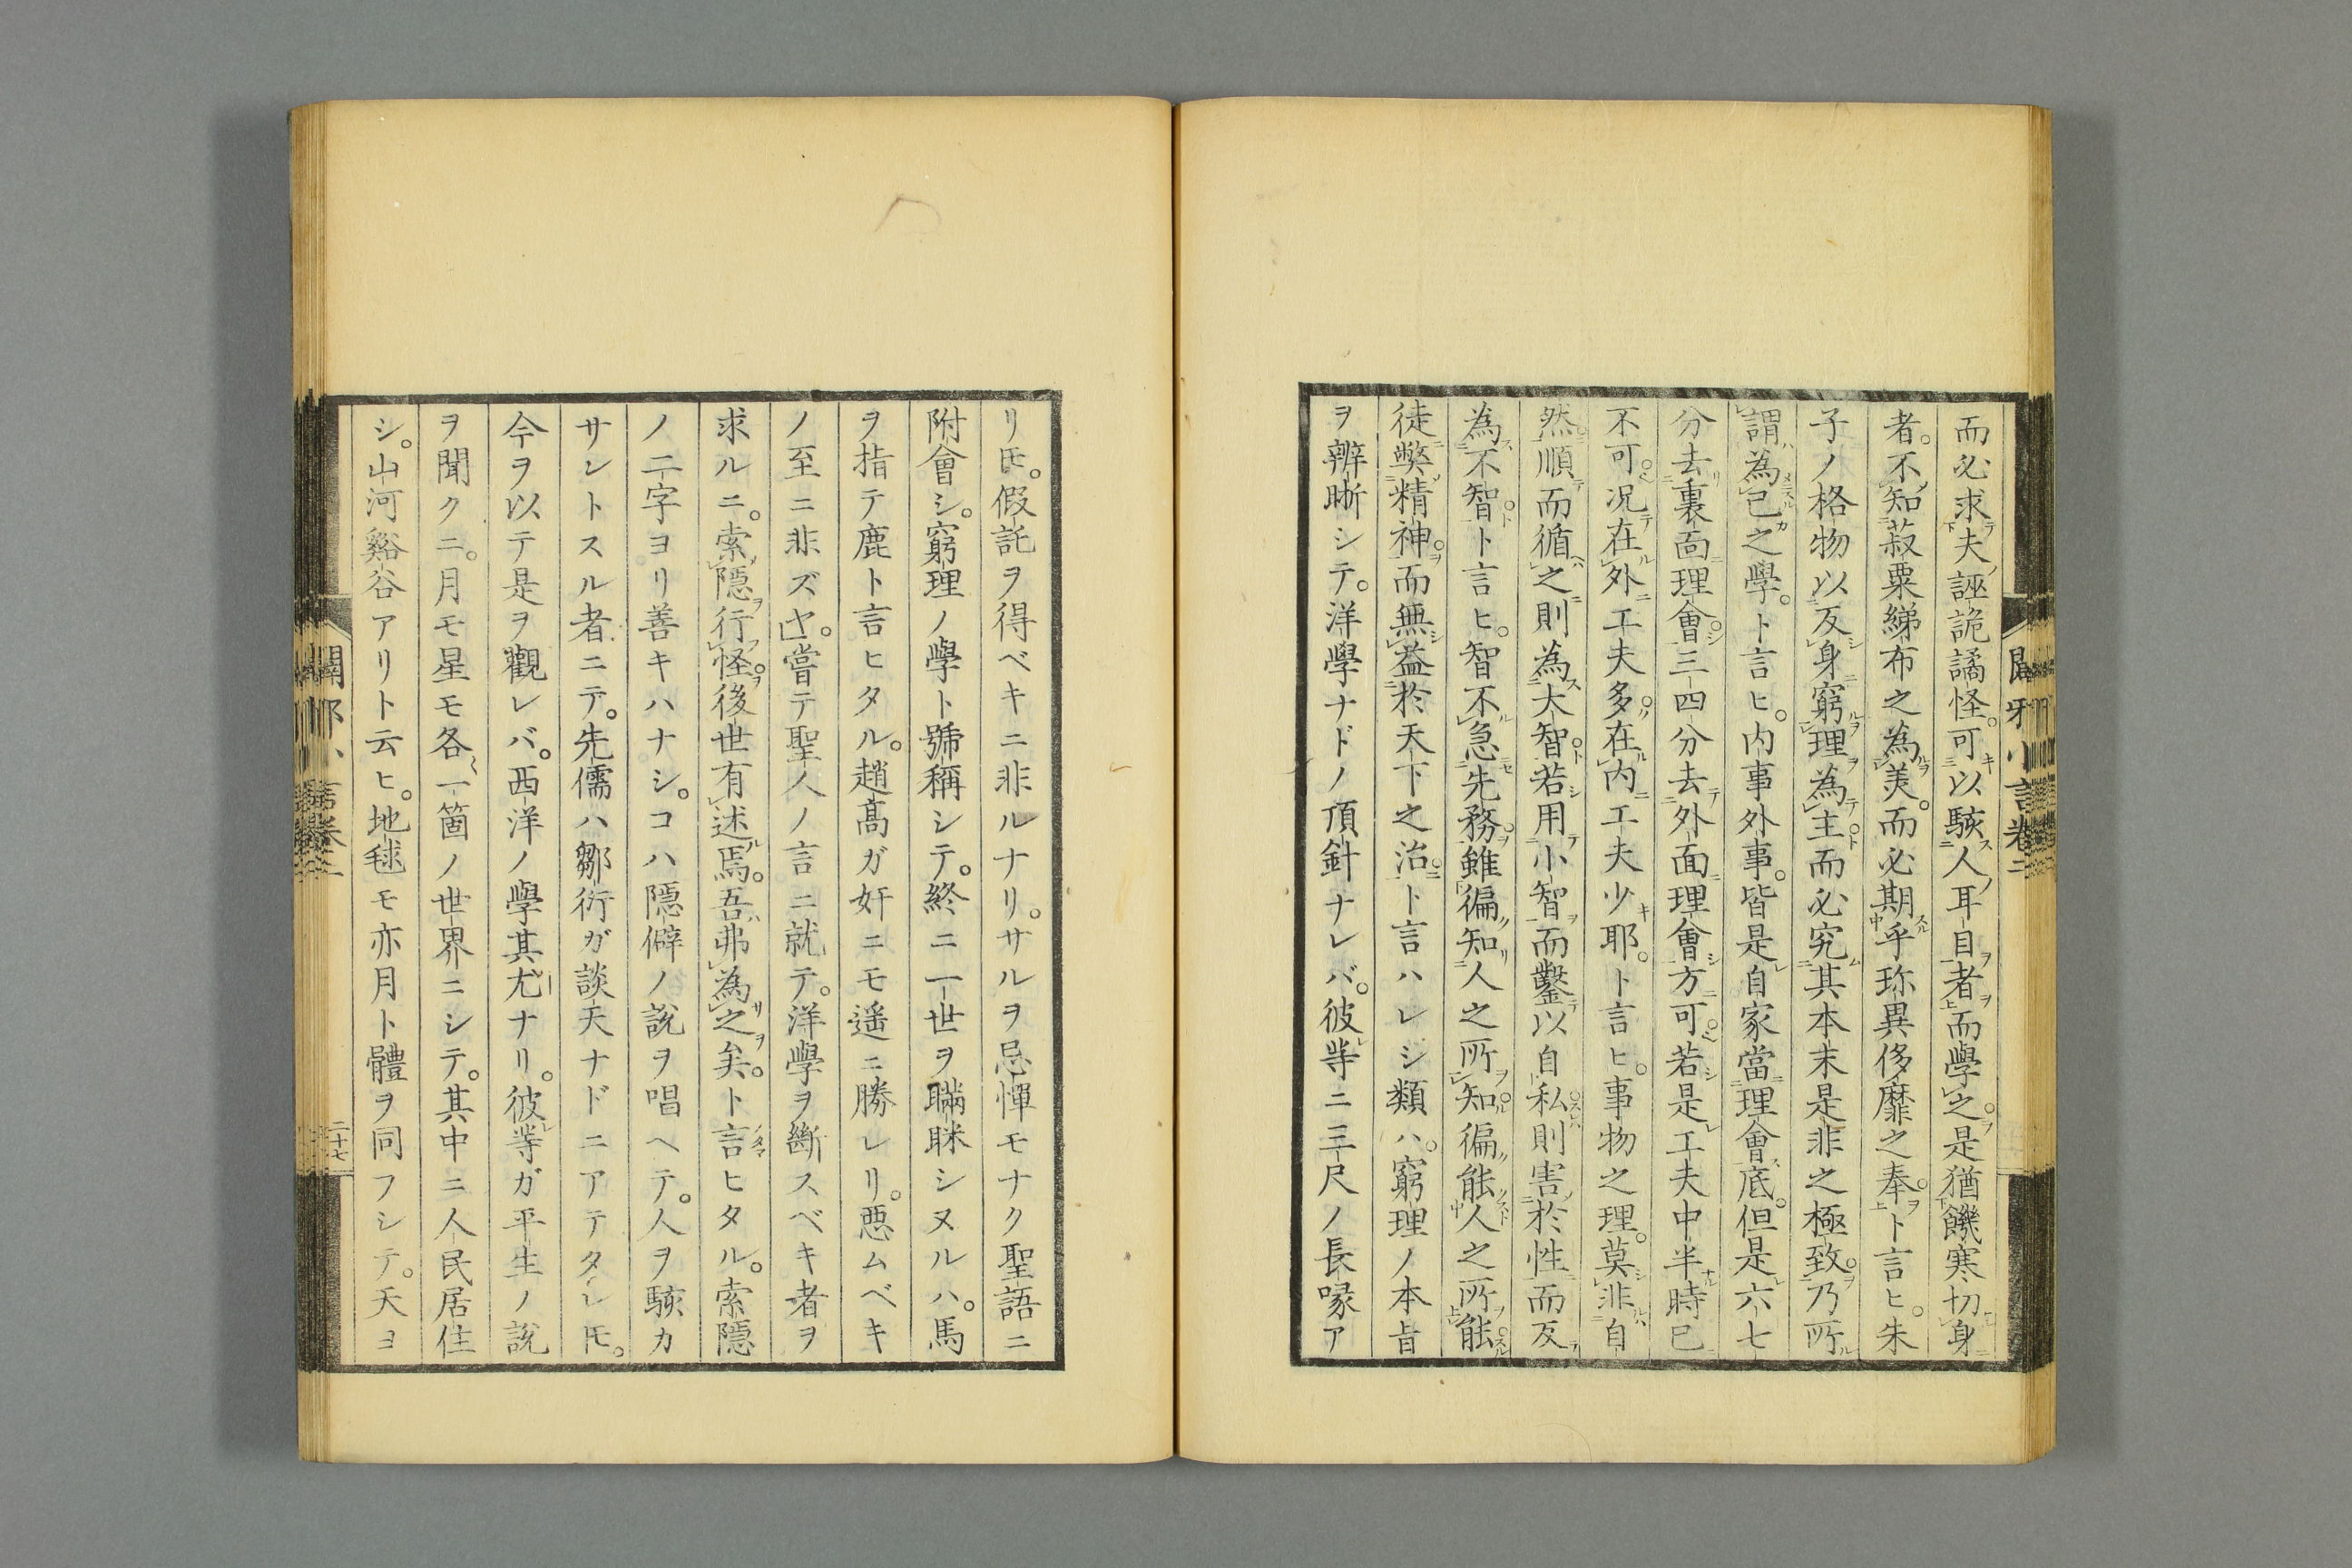 而必求夫誣詭譎怪。可以駭人耳目者而學之。是猶饑寒切身
者。不知菽粟綈布之為美。而必期乎珍異侈靡之奉。ト言ヒ。朱
子ノ格物以反身窮理為主。而必究其本末是非之極致。乃所
謂為己之學。ト言ヒ。内事外事。皆是自家當理會底。但是六七
分去裏面理會。三四分去外面理會方可。若是工夫中半時已
不可。况在外工夫多。在内工夫少耶。ト言ヒ。事物之理。莫非自
然。順而循之則為大智。若用小智而鑿以自私。則害於性而反
為不智。ト言ヒ。智不急先務。雖徧知人之所知。徧能人之所能。
徒弊精神。而無益於天下之治。ト言ハレシ類ハ。窮理ノ本旨
ヲ辨晰シテ。洋學ナドノ頂針ナレバ。彼等ニ三尺ノ長喙ア
リ𪜈。假託ヲ得ベキニ非ルナリ。サルヲ忌憚モナク聖語ニ
附會シ。窮理ノ學ト號稱シテ。終ニ一世ヲ瞞眯シヌルハ。馬
ヲ指テ鹿ト言ヒタル。趙高ガ奸ニモ遥ニ勝レリ。惡ムベキ
ノ至ニ非ズヤ。嘗テ聖人ノ言ニ就テ。洋學ヲ斷スベキ者ヲ
求ルニ。索隱行怪。後世有述焉。吾弗為之矣。ト言ヒタル。索隱
ノ二字ヨリ善キハナシ。コハ隱僻ノ說ヲ唱ヘテ。人ヲ駭カ
サントスル者ニテ。先儒ハ鄒衍ガ談天ナドニアテタレ𪜈。
今ヲ以テ是ヲ觀レバ。西洋ノ學其尤ナリ。彼等ガ平生ノ說
ヲ聞クニ。月モ星モ各〻一箇ノ世界ニシテ。其中ニ人民居住
シ。山河谿谷アリト云ヒ。地毬モ亦月ト體ヲ同フシテ。天ヨ
二十七